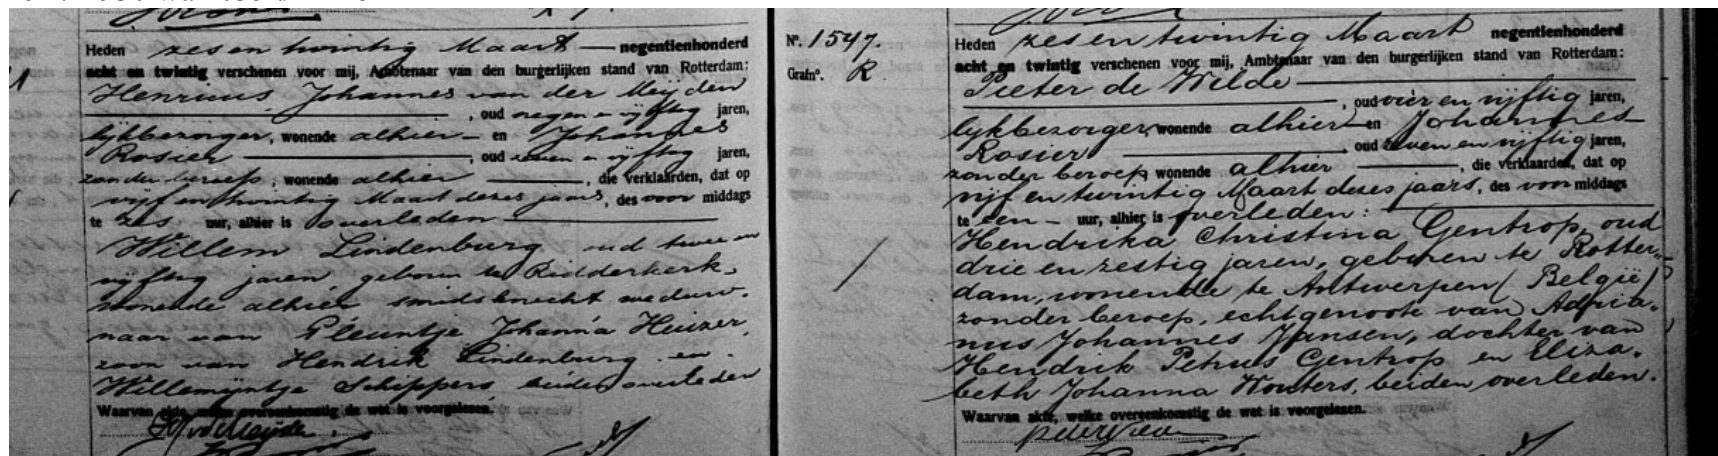 Heden zes en twintig Maart — negentienhonderd
acht en twintig verschenen voor mij, Ambtenaar van den burgerlijken stand van Rotterdam:
Henricus Johannes van der Meijden
, oud negen en vijftig jaren,
lijkbezorger, wonende alhier — en Johannes
Rosier , oud zeven en vijftig jaren,
zonder beroep, wonende alhier , die verklaarden, dat op
vijf en twintig Maart dezes jaars, des voor middags
te zes uur, alhier is overleden
Willem Lindenburg oud twee en
vijftig jaren, geboren te Ridderkerk,
wonende alhier smidsknecht weduw-
naar van Pleuntje Johanna Huizer,
zoon van Hendrik Lindenburg en
Willemijntje Schippers, beiden overleden
Waarvan akte, welke overeenkomstig de wet is voorgelezen.
Nº. 1547.
Grafnº. R.
Heden zes en twintig Maart negentienhonderd
acht en twintig verschenen voor mij, Ambtenaar van den burgerlijken stand van Rotterdam:
Pieter de Wilde
, oud vier en vijftig jaren,
lijkbezorger, wonende alhier — en Johannes
Rosier , oud zeven en vijftig jaren,
zonder beroep wonende alhier , die verklaarden, dat op
vijf en twintig Maart dezes jaars, des voor middags
te een — uur, alhier is overleden:
Hendrika Christina Gentrop, oud
drie en zestig jaren, geboren te Rotter-
dam, wonende te Antwerpen (België)
zonder beroep, echtgenoote van Adria-
nus Johannes Jansen, dochter van
Hendrik Petrus Gentrop en Eliza-
beth Johanna Wouters, beiden overleden.
Waarvan akte, welke overeenkomstig de wet is voorgelezen.